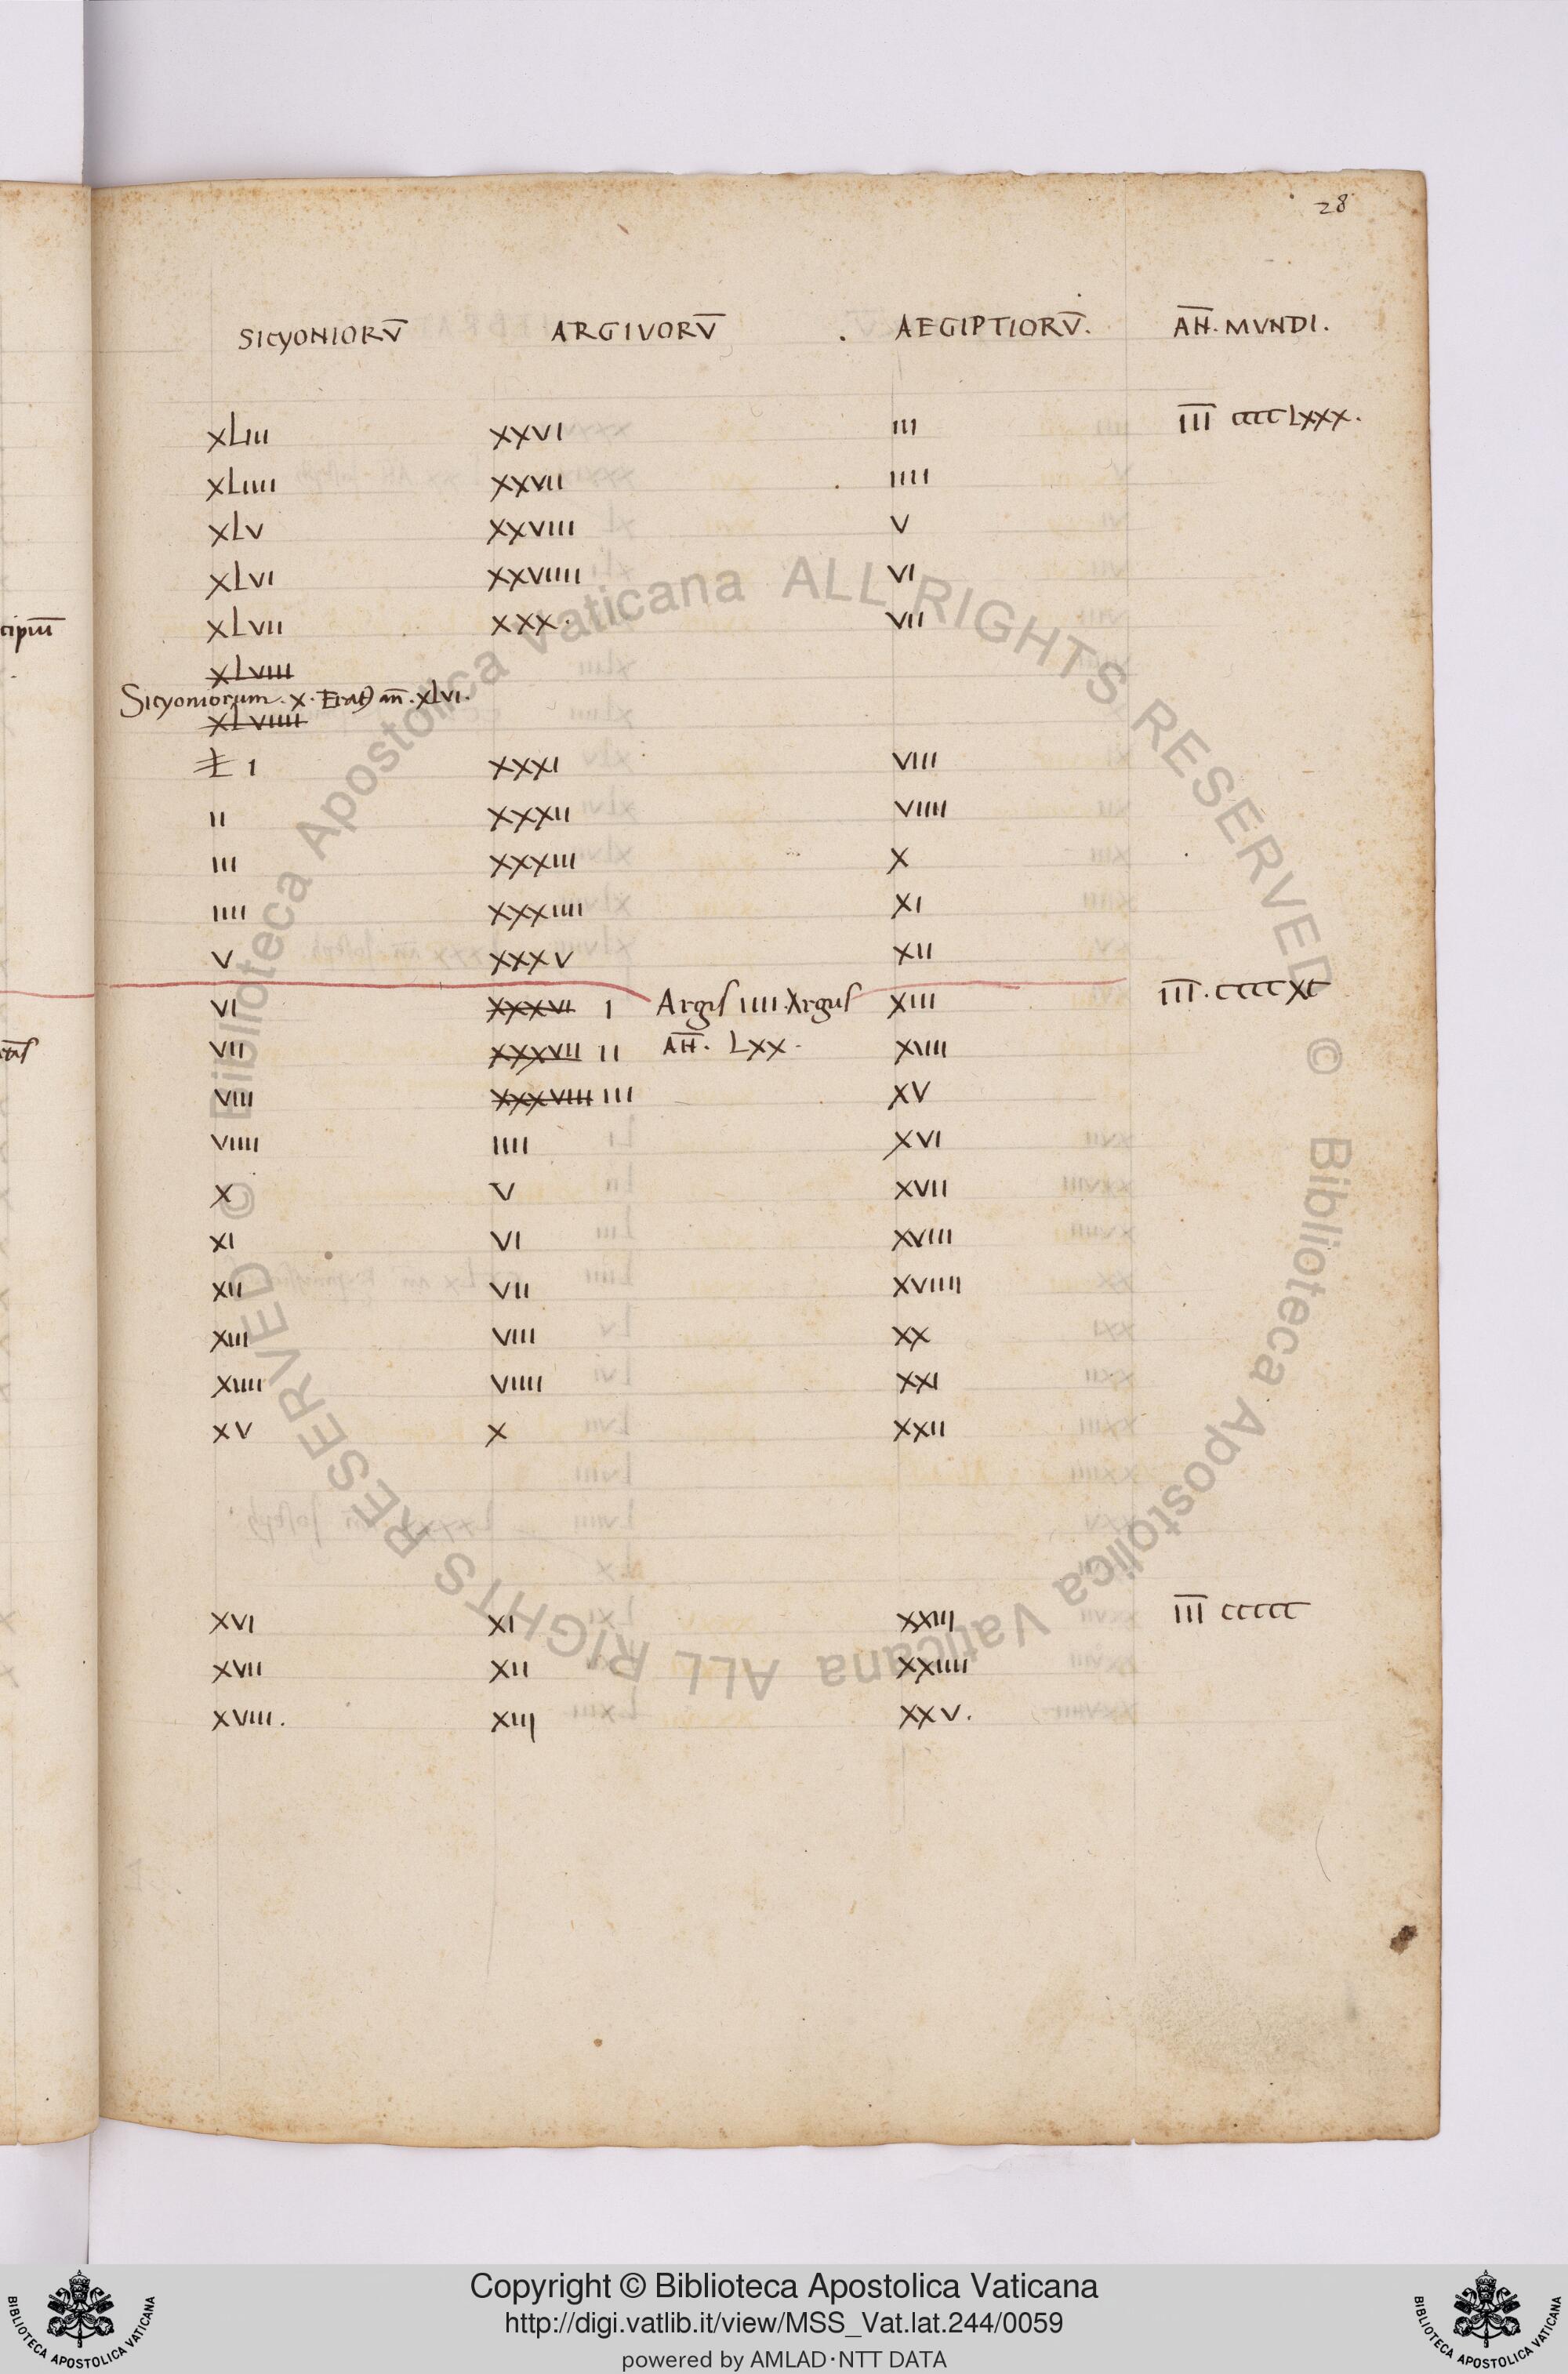 28
SICYONIORV̄ ARGIVORV̄ . AEGIPTIORV̄. AN̄. MVNDI.
XLIII XXVI III I̅I̅I̅ CCCCLXXX.
XLIIII XXVII IIII
XLV XXVIII V
XLVI XXVIIII VI
cipiu̅ XLVII XXX. VII
XLVIII
Sicyoniorum. X. Erat) an̄. XLVI.
XLVIIII
L I XXXI VIII
II XXXII VIIII
III XXXIII X
IIII XXXIIII XI
V XXXV XII
VI XXXVI I Argis IIII. Argus XIII I̅I̅I̅. CCCCXC
VII XXXVII II AN̄. LXX. XIIII
VIII XXXVIII III XV
VIIII IIII XVI
X V XVII
XI VI XVIII
XII VII XVIIII
XIII VIII XX
XIIII VIIII XXI
XV X XXII
XVI XI XXIII I̅I̅I̅ CCCCC
XVII XII XXIIII
XVIII. XIII XXV.
© Biblioteca Apostolica Vaticana ALL RIGHTS RESERVED © Biblioteca Apostolica Vaticana ALL RIGHTS RESERVED
Copyright © Biblioteca Apostolica Vaticana
http://digi.vatlib.it/view/MSS_Vat.lat.244/0059
powered by AMLAD·NTT DATA
BIBLIOTECA APOSTOLICA VATICANA
BIBLIOTECA APOSTOLICA VATICANA